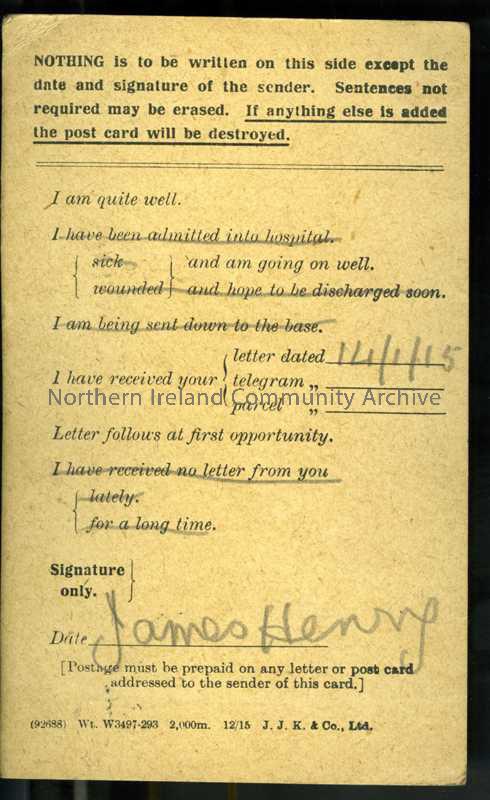 NOTHING is to be written on this side except the
date and signature of the sender. Sentences not
required may be erased. If anything else is added
the post card will be destroyed.
I am quite well.
I have been admitted into hospital.
sick and am going on well.
wounded and hope to be discharged soon.
I am being sent down to the base.
letter dated 14/1/15
I have received your telegram „
Northern Ireland Community Archive
parcel „
Letter follows at first opportunity.
I have received no letter from you
lately.
for a long time.
Signature
only.
James Henry
Date
[Postage must be prepaid on any letter or post card
addressed to the sender of this card.]
(92688) Wt. W3497-293 2,000m. 12/15 J. J. K. & Co., Ltd.